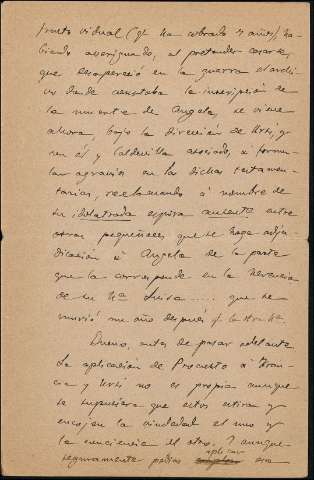 fructo vidual (qe ha cobrado 7 años) ha-
biendo averiguado, al pretender casarse,
que desapareció en la guerra el archi-
vo donde constaba la inscripción de
la muerte de Angela, se viene
ahora, bajo la dirección de Urti, y
en él y Caldevilla asociado, a formu-
lar agravios en las dichas testamen-
tarías, reclamando á nombre de
su idolatrada esposa ausente entre
otras pequeñeces que se haga adju-
dicación á Angela de la parte
que la corresponde en la herencia
de su Hª Luisa ..... que se
murió un año después q. la
Bueno, antes de pasar adelante
La aplicación de Procusto á
y Urti no es propia aunque
se supusiera que estos estira y
encoge, en la viudedad el uno y
la conciencia el otro. Y aunque
aplicar
seguramente podías eso